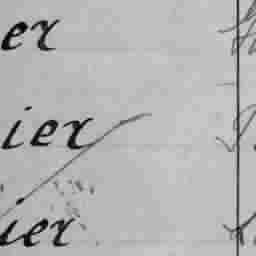 er
ier
ier